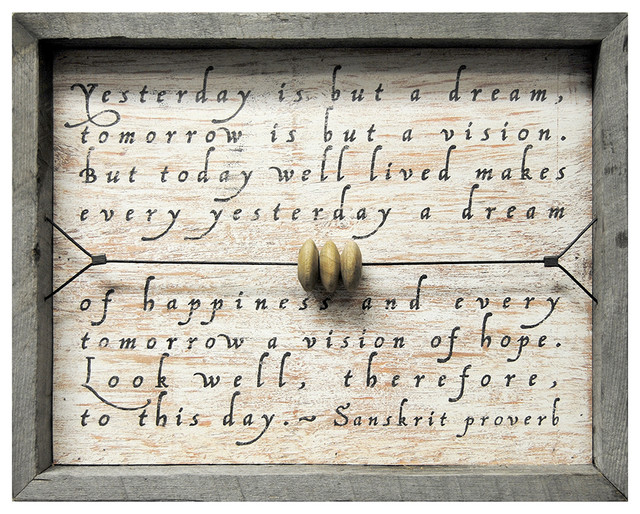 Yesterday is but a dream,
tomorrow is but a vision.
But today well lived makes
every yesterday a dream
of happiness and every
tomorrow a vision of hope.
Look well, therefore,
to this day.~ Sanskrit proverb